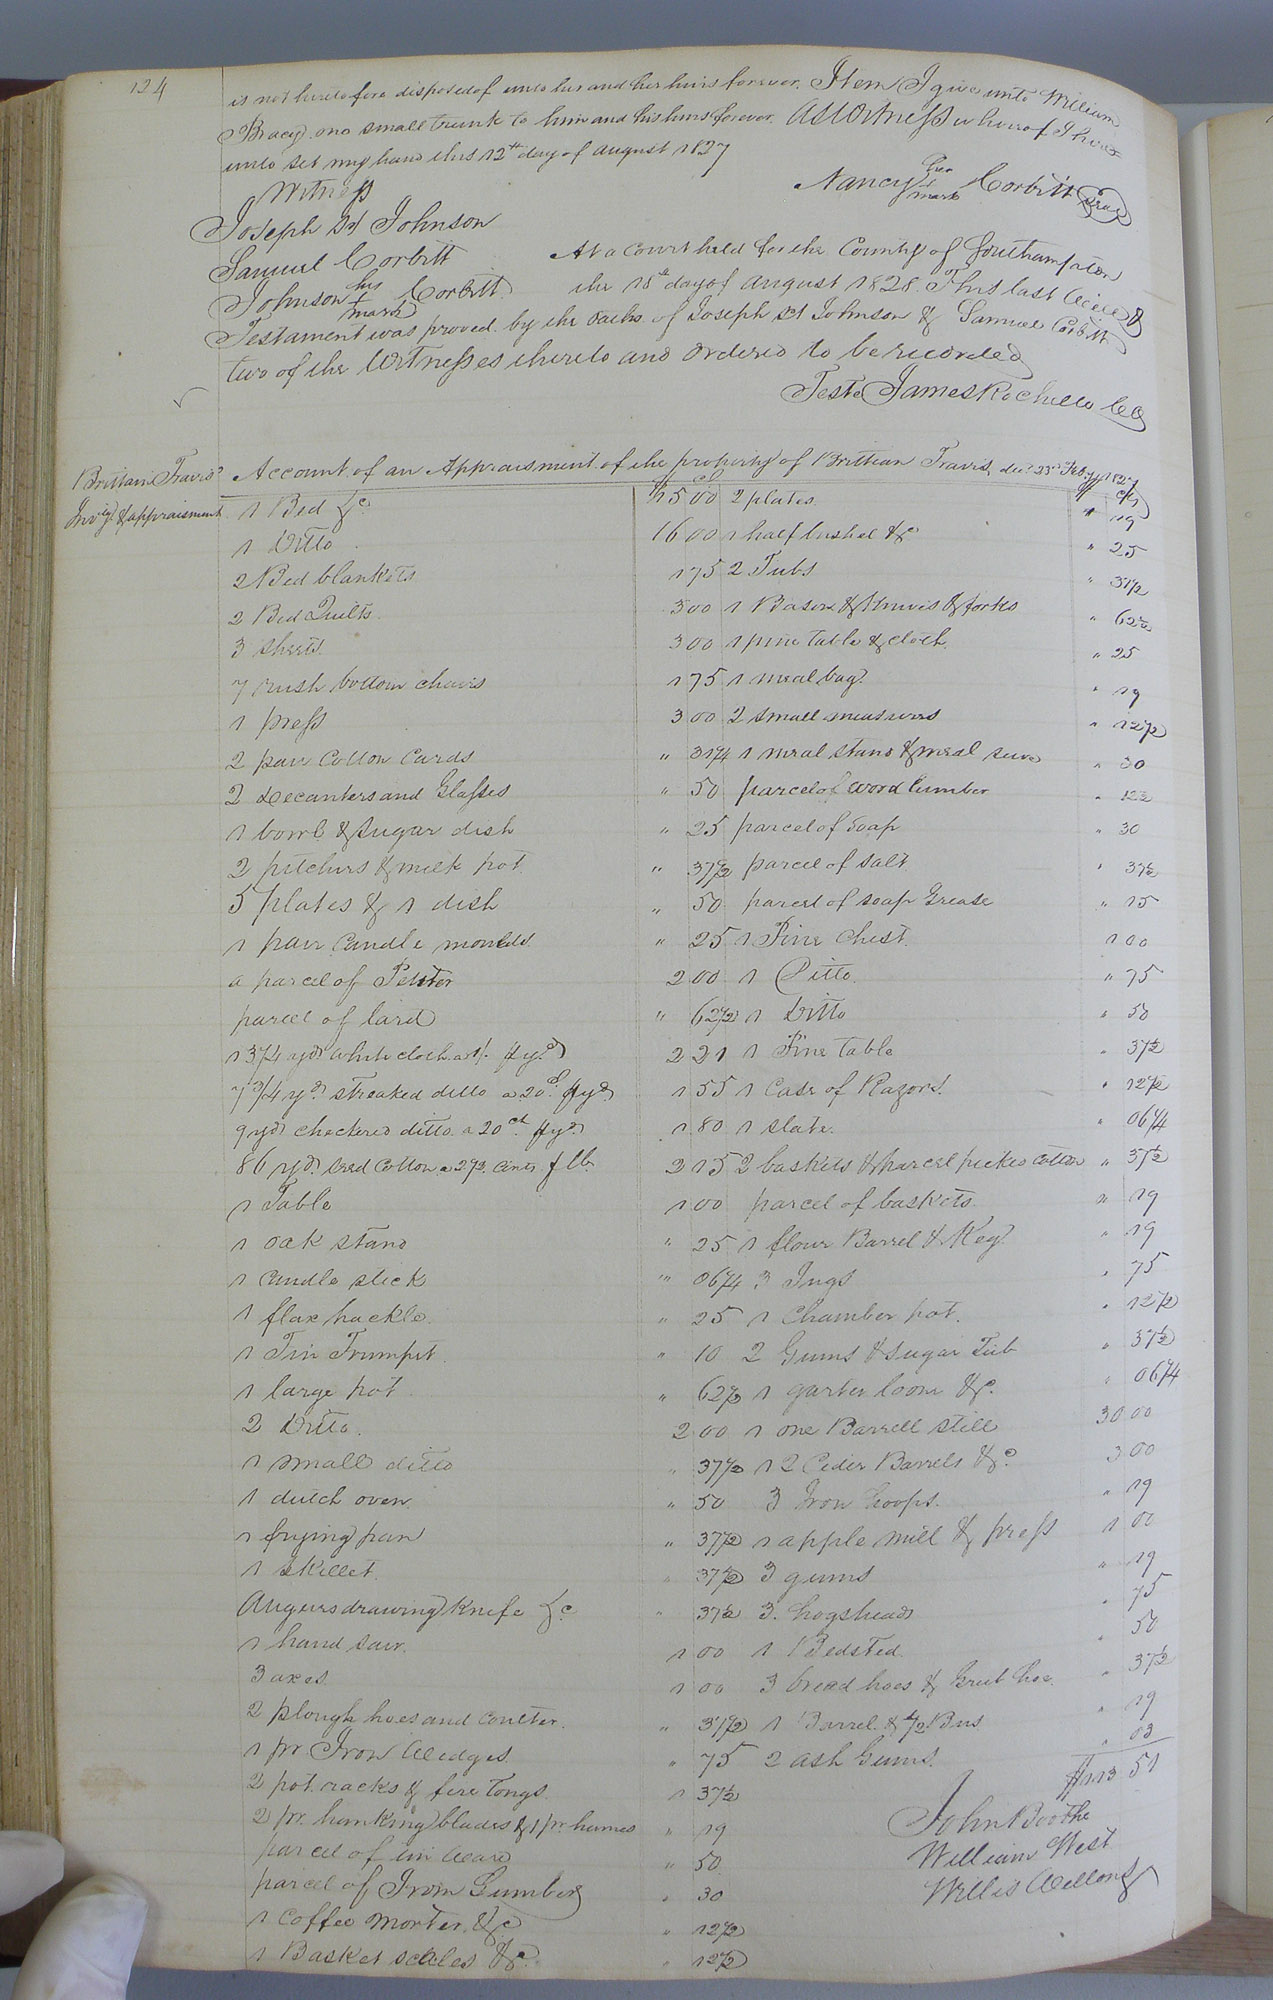 124
is not heretofore disposed of unto her and her heirs forever. Item I give unto William
Bracy one small trunk to him and his heirs forever. As Witness whereof I have
unto set my hand this 12th day of August 1827
Nancy her + mark Corbitt Seal
Witness
Joseph St Johnson
Samuel Corbitt
Johnson his + mark Corbitt
At a Court held for the County of Southampton
the 18th day of August 1828. This last Will &
Testament was proved by the oaths of Joseph St Johnson & Samuel Corbitt
two of the Witnesses thereto and ordered to be recorded
Teste James Rochelle CC
Brittain Travis' Invty & appraisment
Account of an Appraisment of the property of Brittian Travis, dec'd 23rd Feby 1827
1 Bed &c $15 00
1 Ditto 16 00
2 Bed blankets 1 75
2 Bed Quilts 3 00
3 sheets 3 00
7 rush bottom chairs 1 75
1 press 3 00
2 pair Cotton Cards " 31 1/4
2 Decanters and Glasses " 50
1 bowl & sugar dish " 25
2 pitchers & milk pot " 37 1/2
5 plates & 1 dish " 50
1 pair Candle moulds " 25
a parcel of Pewter 2 00
parcel of lard " 62 1/2
13 3/4 yds white cloth a 1/. ⅌ yd 2 21
7 3/4 yds streaked ditto a 20d ⅌ yd 1 55
9 yds checkered ditto a 20ct ⅌ yd 1 80
86 yds seed Cotton a 2 1/2 cents ⅌ lb 2 15
1 Table 1 00
1 oak stand " 25
1 Candle stick " 06 1/4
1 flax hackle " 25
1 Tin Trumpet " 10
1 large pot " 62 1/2
2 Ditto 2 00
1 small ditto " 37 1/2
1 dutch oven " 50
1 frying pan " 37 1/2
1 skillet " 37 1/2
Augurs drawing Knife &c " 37 1/2
1 hand saw 1 00
3 axes 1 00
2 plough hoes and Coulter " 37 1/2
1 pr Iron Wedges " 75
2 pot racks & fire Tongs 1 37 1/2
2 pr. hanking blades & 1 pr. hames " 19
parcel of tin Ware " 50
parcel of Iron Lumber " 30
1 Coffee Morter &c " 12 1/2
1 Basket scales &c " 12 1/2
2 plates " 19
1 half bushel &c " 25
2 Tubs " 31 1/2
1 Bason & Knives & forks " 62 1/2
1 pine table & cloth " 25
1 meal bag " 19
2 small measures " 12 1/2
1 meal stand & meal sieve " 30
parcel of wood lumber " 12 1/2
parcel of Soap " 30
parcel of salt " 37 1/2
parcel of soap Grease " 15
1 Pine Chest 1 00
1 Ditto " 75
1 Ditto " 50
1 Pine table " 37 1/2
1 Case of Razors " 12 1/2
1 slate " 06 1/4
2 baskets & parcel picked Cotton " 37 1/2
parcel of baskets " 19
1 flour Barrel & Keg " 19
3 Jugs " 75
1 Chamber pot " 12 1/2
2 Gums & sugar Tub " 37 1/2
1 garter loom &c " 06 1/4
1 one Barrell still 30 00
1 2 Cider Barrels &c 3 00
3 Iron hoops " 19
1 apple mill & press 1 00
3 gums " 19
3 hogsheads " 75
1 Bedsted " 50
3 broad hoes & Grub hoe " 37 1/2
1 Barrel & 1/2 Bus " 19
2 ash Gums " 03
$113 51
John Boothe
William West
Willis Wellons